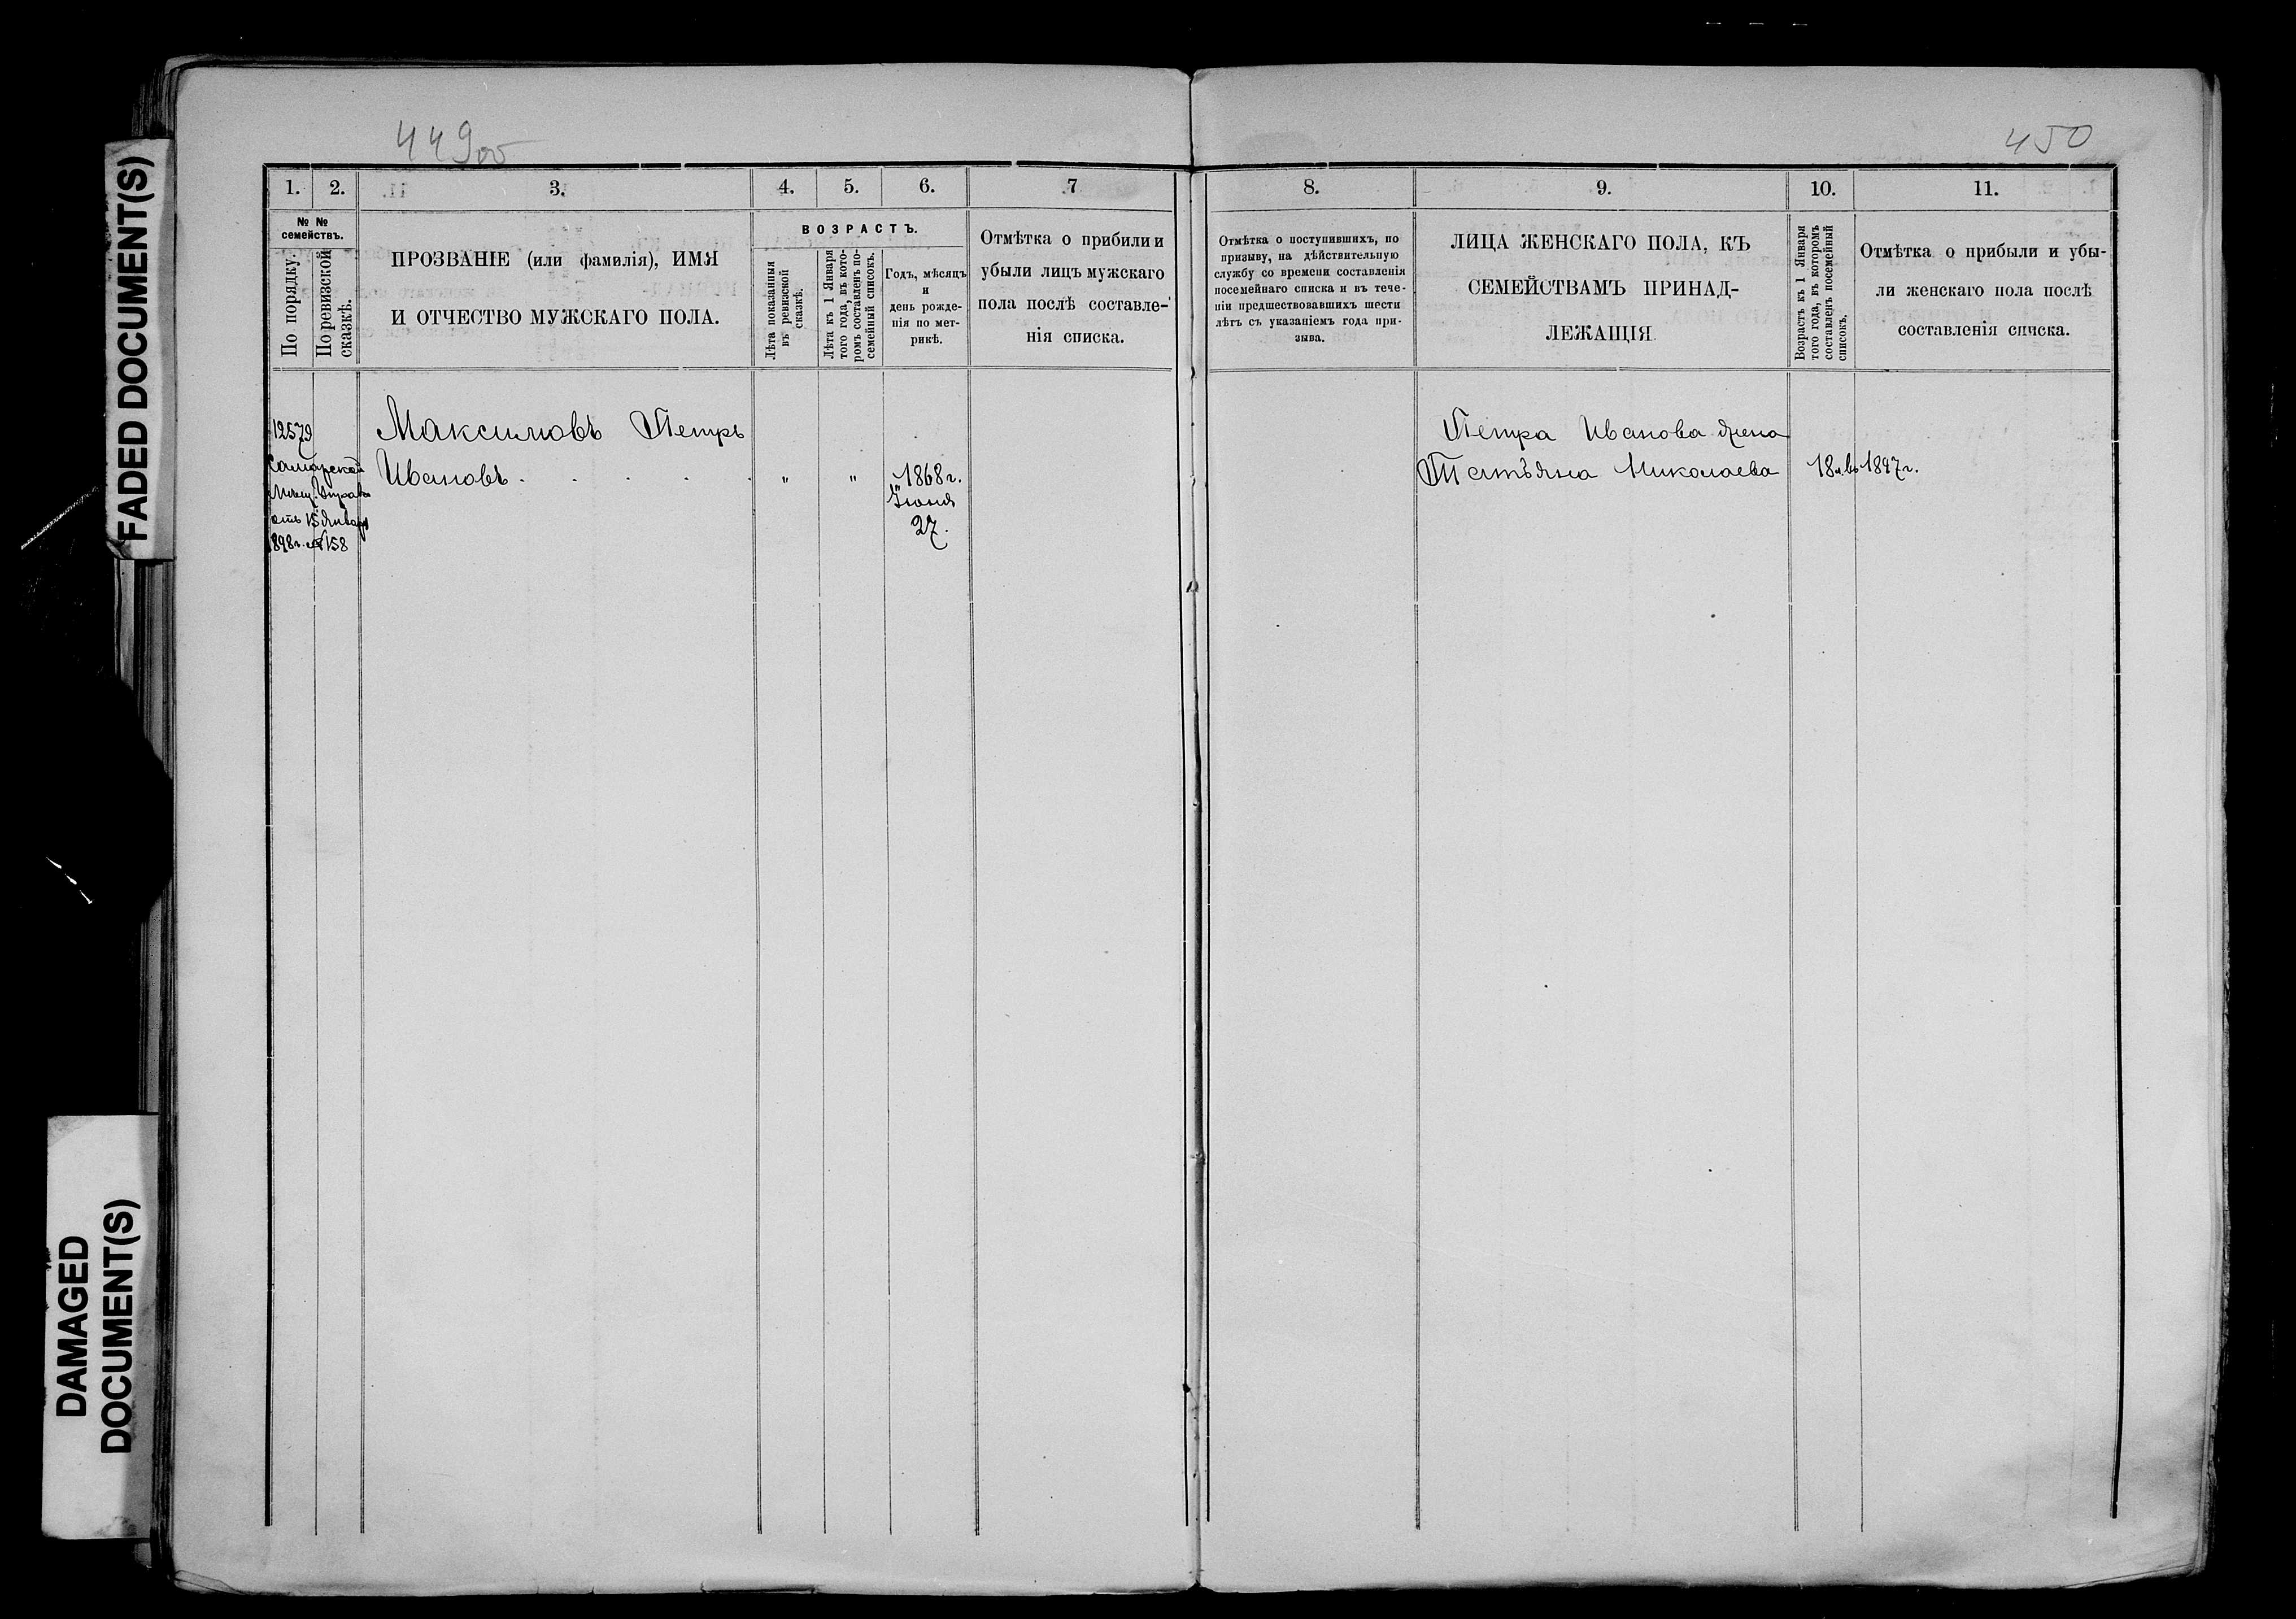 449об
450
FADED DOCUMENT(S)
DAMAGED
DOCUMENT(S)
1.
2.
3.
4.
5.
6.
7
№ №
семействъ.
По порядку.
По ревизской
сказкѣ.
ПРОЗВАНІЕ (или фамилія), ИМЯ
И ОТЧЕСТВО МУЖСКАГО ПОЛА.
ВОЗРАСТЪ.
Лѣта показанныя
въ ревизской
сказкѣ.
Лѣта къ 1 Января
того года, въ кото-
ромъ составленъ по-
семейный списокъ.
Годъ, мѣсяцъ
и
день рожде-
нія по мет-
рикѣ.
Отмѣтка о прибили и
убыли лицъ мужскаго
пола послѣ составле-
нія списка.
12579
Самарской
Мѣщ. Управы
отъ 15 Января
1898 г. № 158
Максимовъ Петръ
Ивановъ . . . . .
"
"
1868 г.
Іюня
27.
8.
9.
10.
11.
Отмѣтка о поступившихъ, по
призыву, на дѣйствительную
службу со времени составленія
посемейнаго списка и въ тече-
ніи предшествовавшихъ шести
лѣтъ съ указаніемъ года при-
зыва.
ЛИЦА ЖЕНСКАГО ПОЛА, КЪ
СЕМЕЙСТВАМЪ ПРИНАД-
ЛЕЖАЩІЯ.
Возрастъ къ 1 Января
того года, въ которомъ
составленъ посемейный
списокъ.
Отмѣтка о прибыли и убы-
ли женскаго пола послѣ
составленія списка.
Петра Иванова жена
Татьяна Николаева
18 л. въ 1897 г.